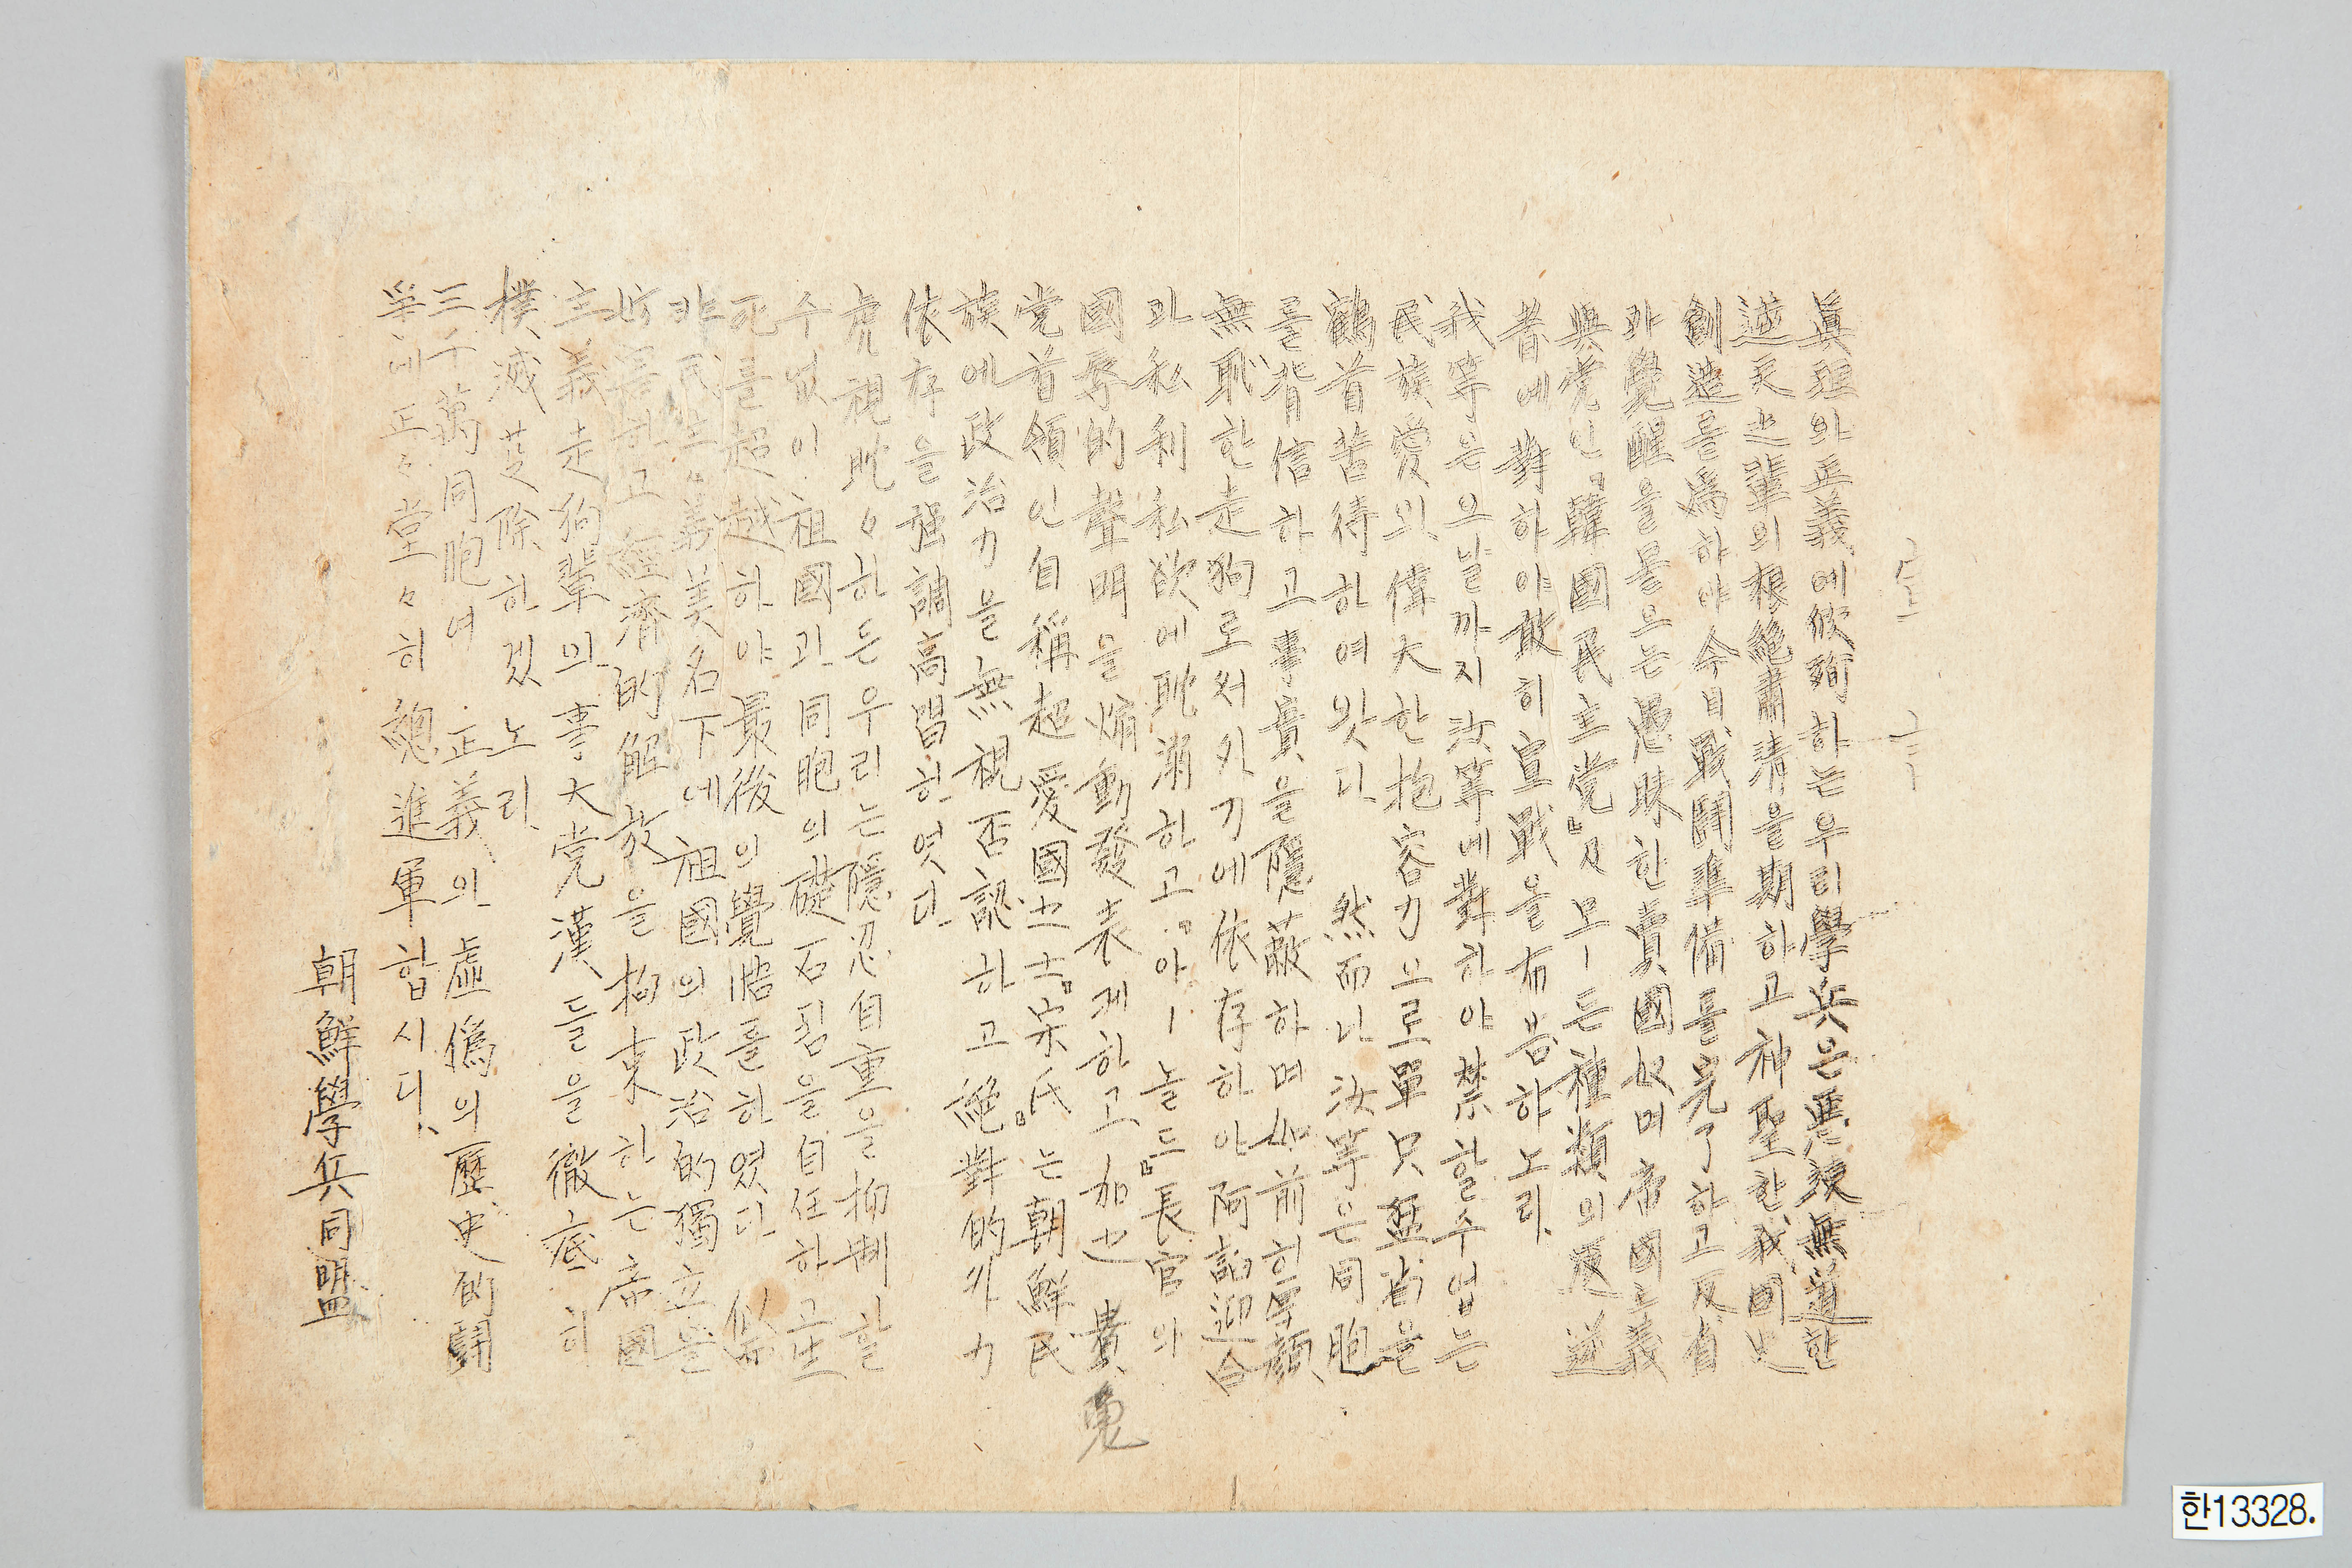 금고
眞理와 正義에 欣殉하는 우리 學兵은 悪辣無道한
逆天之輩의 根絶肅清을 期하고 神聖한 我國史
創造를 爲하야 今日戰鬪準備를 完了하고 反省
과 覺醒을 몰으는 愚昧한 賣國奴며 帝國主義
與党인「韓國民主党」及 모ー든 種類의 反逆
者에 對하야 敢히 宣戰을 布告하노라
我等은 오날까지 汝等에 對하야 禁할 수 업는
民族愛와 偉大한 抱容力으로 單只 猛省을
鶴首苦待하여 왓다 然而나 汝等은 同胞
를 背信하고 事實을 隱蔽하며 如前히 厚顔
無恥한 走狗로써 外力에 依存하야 阿諂迎合
과 私利私欲에 耽溺하고 아ー놀드「長官의
國辱的聲明을 煽動發表케하고 加之 貴
党首領인 自稱超愛國之士「宋氏」는 朝鮮民
族에 政治力을 無視否認하고 絶對的外力
依存을 强調高唱하엿다
虎視眈々하든 우리는 隱忍自重을 抑制할
수 없이 祖國과 同胞의 礎石됨을 自任하고 生
死를 超越하야 最後의 覺悟를 하였다 似而
非民主々義 美名下에 祖國의 政治的獨立을
妨害하고 經濟的解放을 拘束하는 帝國
主義走狗輩의 事大党漢들을 徹底히
撲滅芟除하겠노라
三千萬同胞여 正義의 虛僞의 歷史的鬪
爭에 正々堂々히 總進軍합시다
朝鮮學兵同盟
한13328.